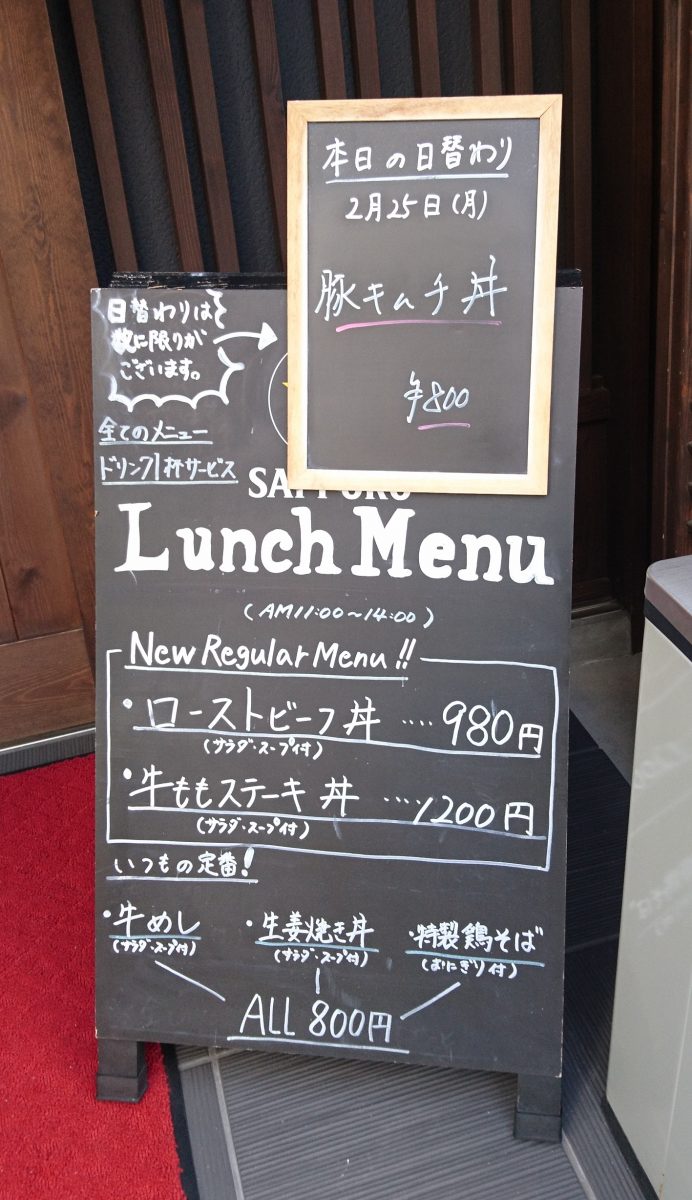 本日の日替わり
2月25日(月)
豚キムチ丼
¥800
日替わりは
数に限りが
ございます。
全てのメニュー
ドリンク1杯サービス
Lunch Menu
(AM11:00～14:00)
New Regular Menu!!
・ローストビーフ丼 ‥‥980円
(サラダ・スープ付)
・牛ももステーキ丼 ‥‥1200円
(サラダ・スープ付)
いつもの定番!
・牛めし ・生姜焼き丼 ・特製鶏そば
(サラダ・スープ付) (サラダ・スープ付) (おにぎり付)
ALL 800円